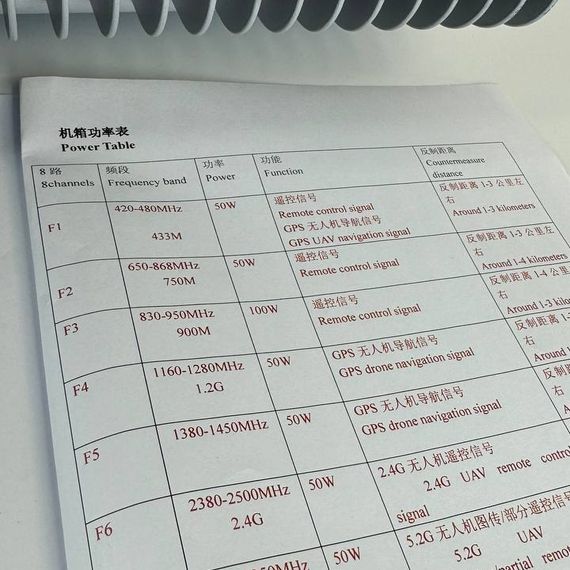 机箱功率表
Power Table
8 路
8channels
频段
Frequency band
功率
Power
功能
Function
反制距离
Countermeasure
distance
F1
420-480MHz
433M
50W
遥控信号
Remote control signal
GPS 无人机导航信号
GPS UAV navigation signal
反制距离 1-3 公里左
右
Around 1-3 kilometers
F2
650-868MHz
750M
50W
遥控信号
Remote control signal
反制距离 1-3 公里左
右
Around 1-4 kilometers
F3
830-950MHz
900M
100W
遥控信号
Remote control signal
反制距离 1-4 公里
右
Around 1-3
F4
1160-1280MHz
1.2G
50W
GPS 无人机导航信号
GPS drone navigation signal
反制距离 1-3
右
Around 1
F5
1380-1450MHz
50W
GPS 无人机导航信号
GPS drone navigation signal
反制距离
右
Around
F6
2380-2500MHz
2.4G
50W
2.4G 无人机遥控信号
2.4G UAV remote control
signal
反制
右
50W
5.2G 无人机图传/部分遥控信号
5.2G UAV
remote